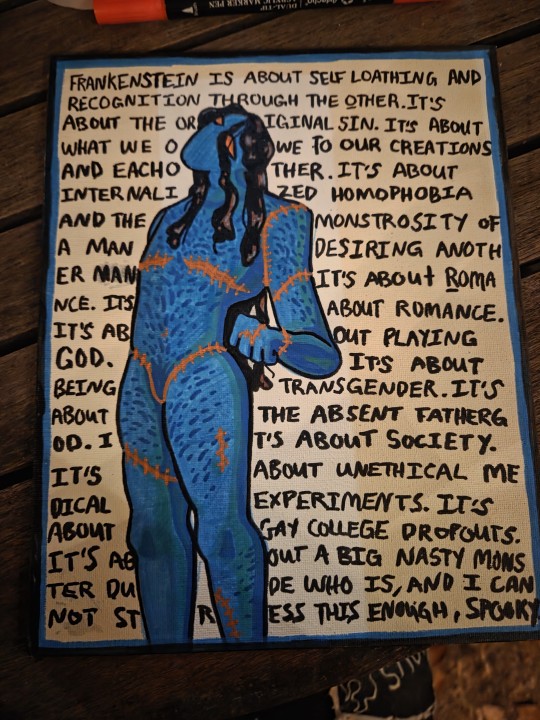 DUAL-TIP
ACRYLIC MARKER PEN
FRANKENSTEIN IS ABOUT SELF LOATHING AND
RECOGNITION THROUGH THE OTHER. IT'S
ABOUT THE OR IGINAL SIN. IT'S ABOUT
WHAT WE O WE TO OUR CREATIONS
AND EACHO THER. IT'S ABOUT
INTERNALI ZED HOMOPHOBIA
AND THE MONSTROSITY OF
A MAN DESIRING ANOTH
ER MAN IT'S ABOUT ROMA
NCE. ITS ABOUT ROMANCE.
IT'S AB OUT PLAYING
GOD. ITS ABOUT
BEING TRANSGENDER. IT'S
ABOUT THE ABSENT FATHERG
OD. I T'S ABOUT SOCIETY.
IT'S ABOUT UNETHICAL ME
DICAL EXPERIMENTS. IT'S
ABOUT GAY COLLEGE DROPOUTS.
IT'S AB OUT A BIG NASTY MONS
TER DU DE WHO IS, AND I CAN
NOT ST R ESS THIS ENOUGH, SPOOKY